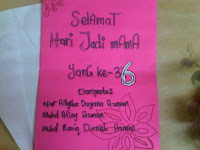 SELAMAT
HARI JADI MAMA
YANG KE-36
Daripada:
Nur Alysha Dayana Azman
Muhd Aljay Azman
Muhd Raziq Danish Azman